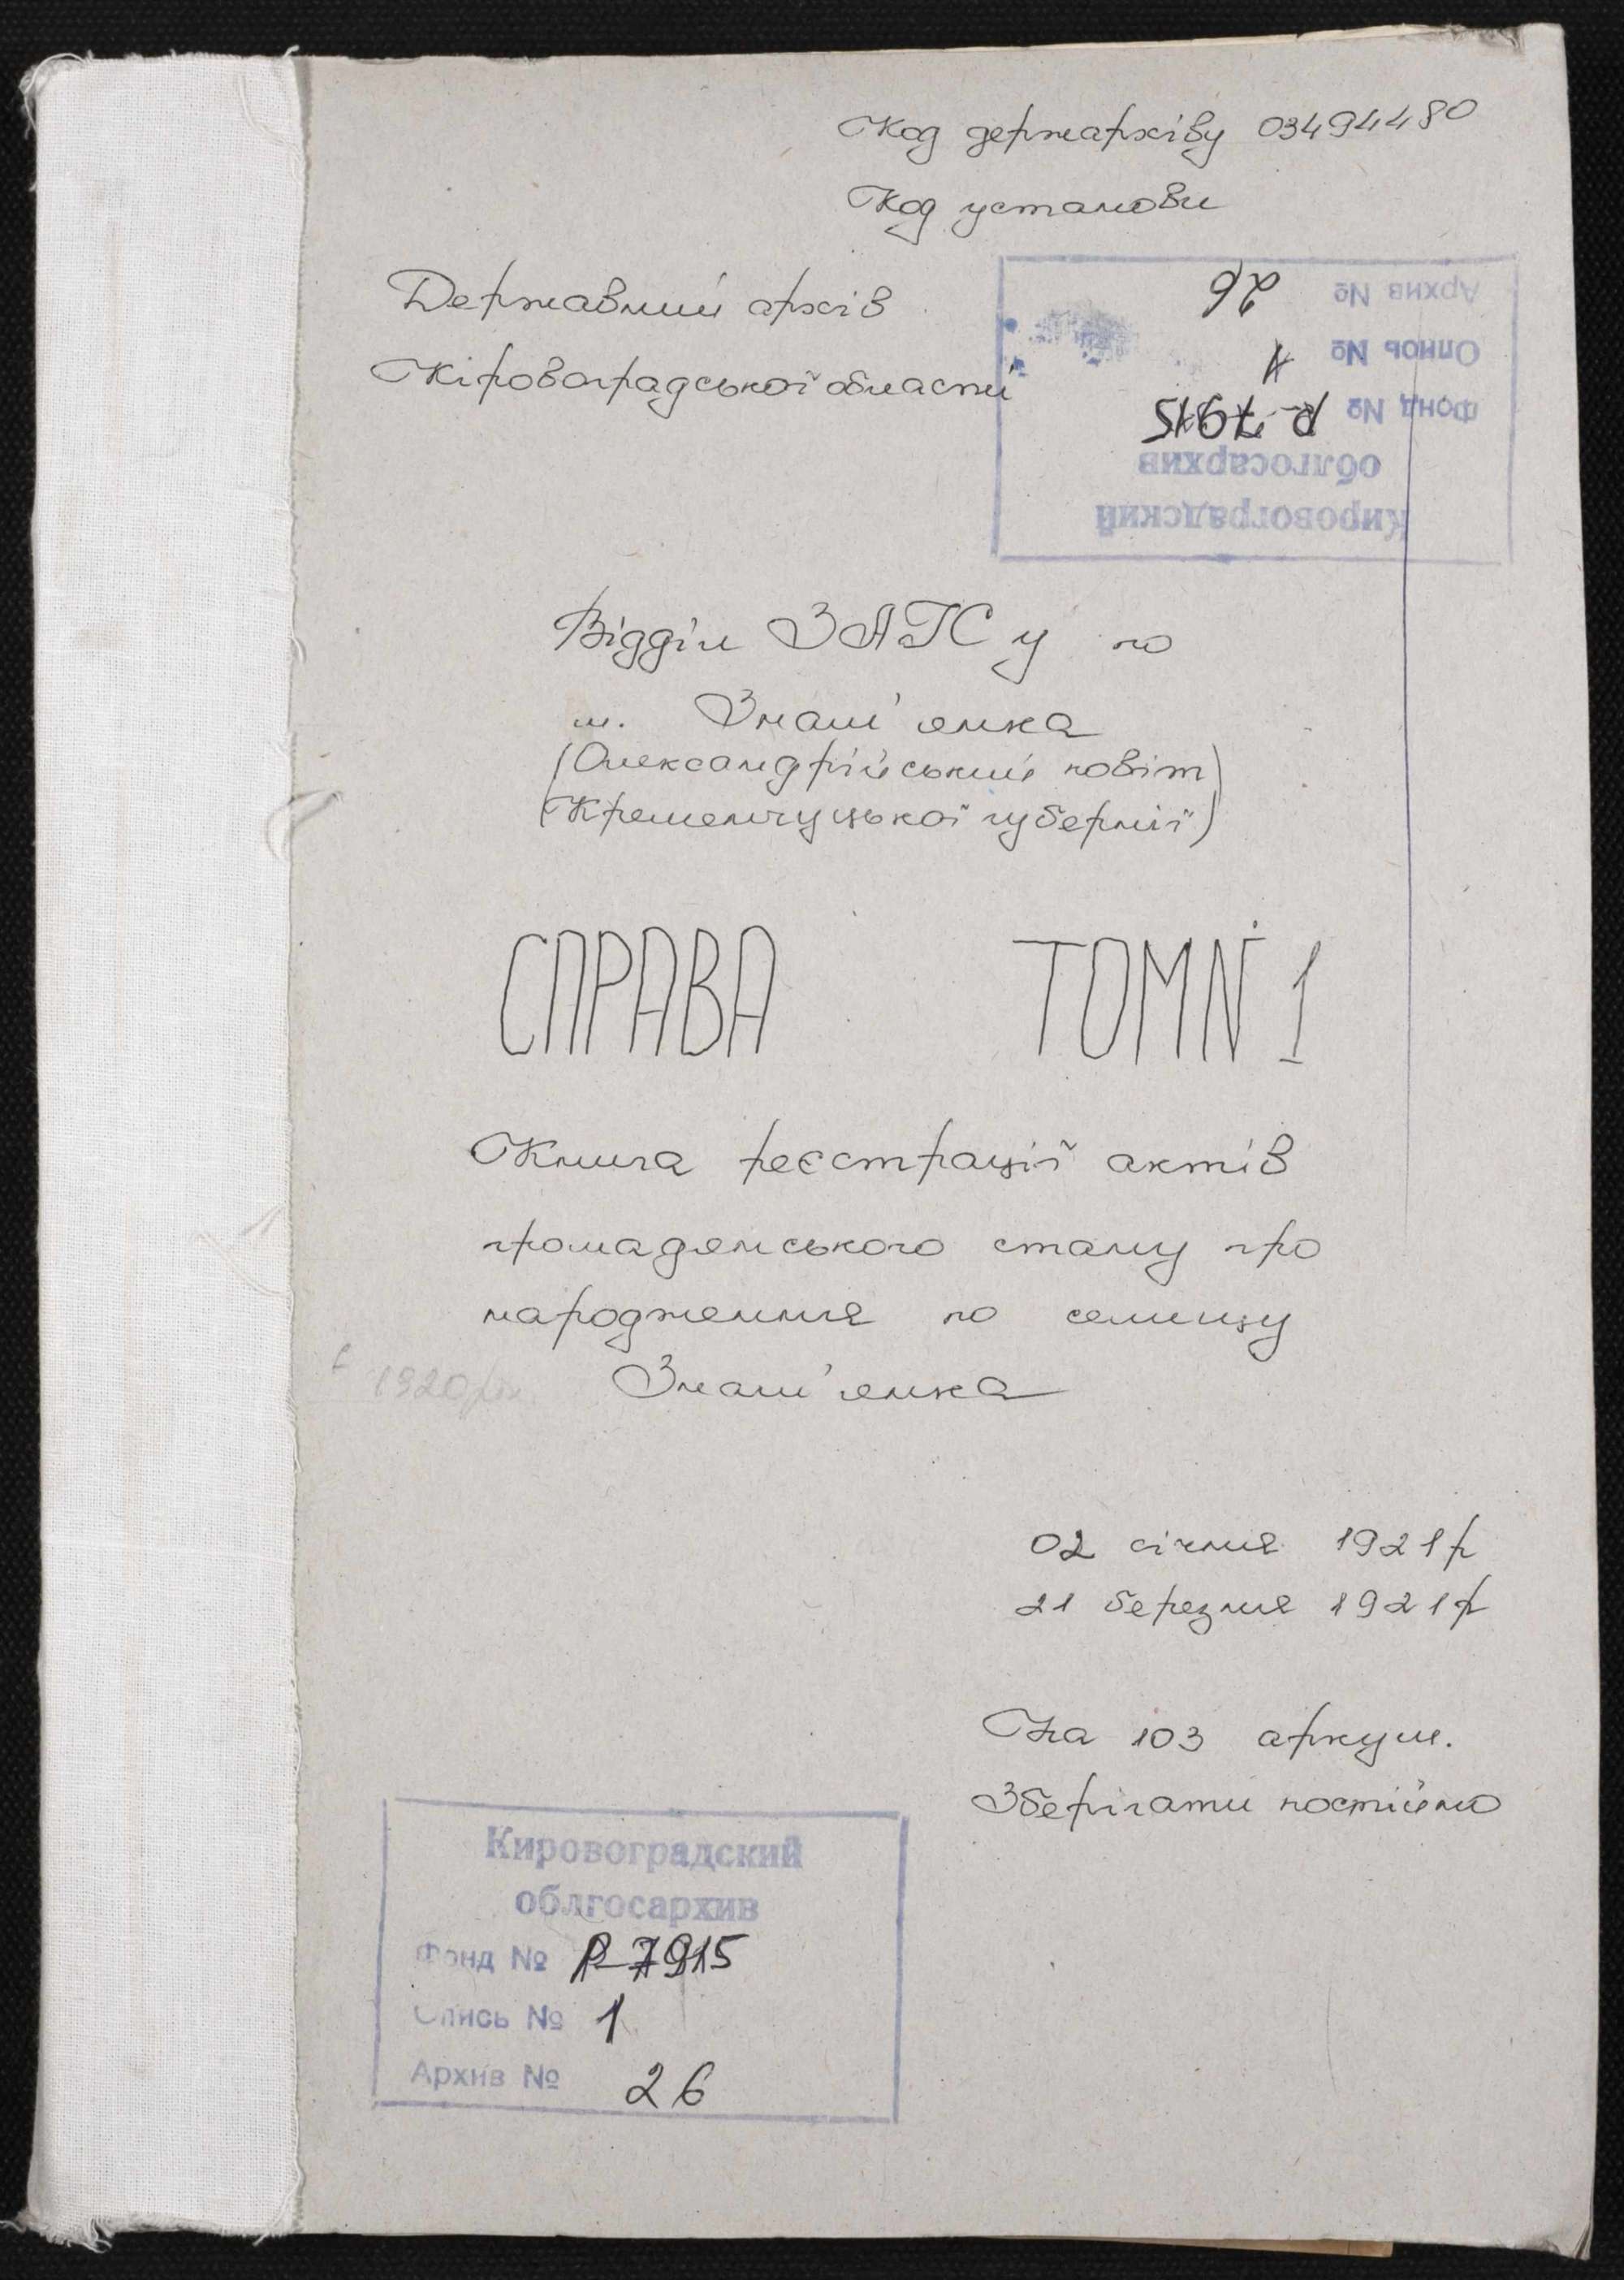 Код держархіву 03494480
Код установи
Державний архів
Кіровоградської області
Архив № 26
Опись № 1
Фонд № Р-7915
облгосархив
Кировоградский
Відділ ЗАГС у по
м. Знам'янка
(Олександрійський повіт)
(Кременчуцької губернії)
СПРАВА ТОМ № 1
Книга реєстрації актів
громадянського стану про
народження по селищу
1920р Знам'янка
02 січня 1921р
21 березня 1921р
На 103 аркуш.
Зберігати постійно
Кировоградский
облгосархив
Фонд № Р-7915
Опись № 1
Архив № 26